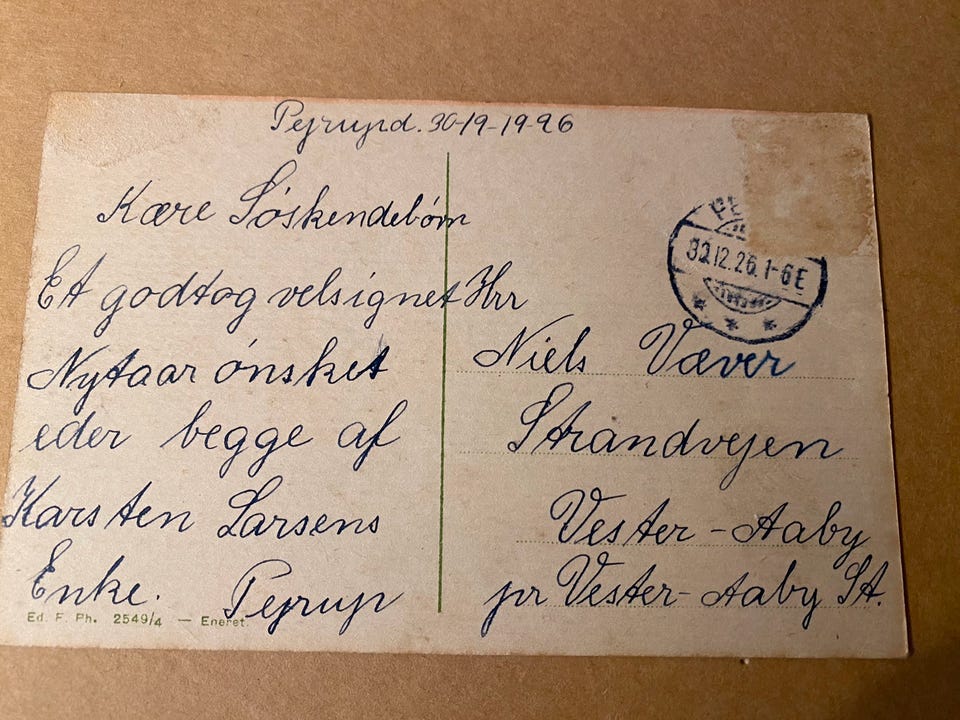 Pejrup d. 30-12-1926
Kære Söskendebörn
Et godt og velsignet
Nytaar önsket
eder begge af
Karsten Larsens
Enke. Pejrup
Ed. F. Ph. 2549/4 — Eneret.
30.12.26.1-6E
Hrr
Niels Væver
Strandvejen
Vester-Aaby
pr Vester-Aaby St.